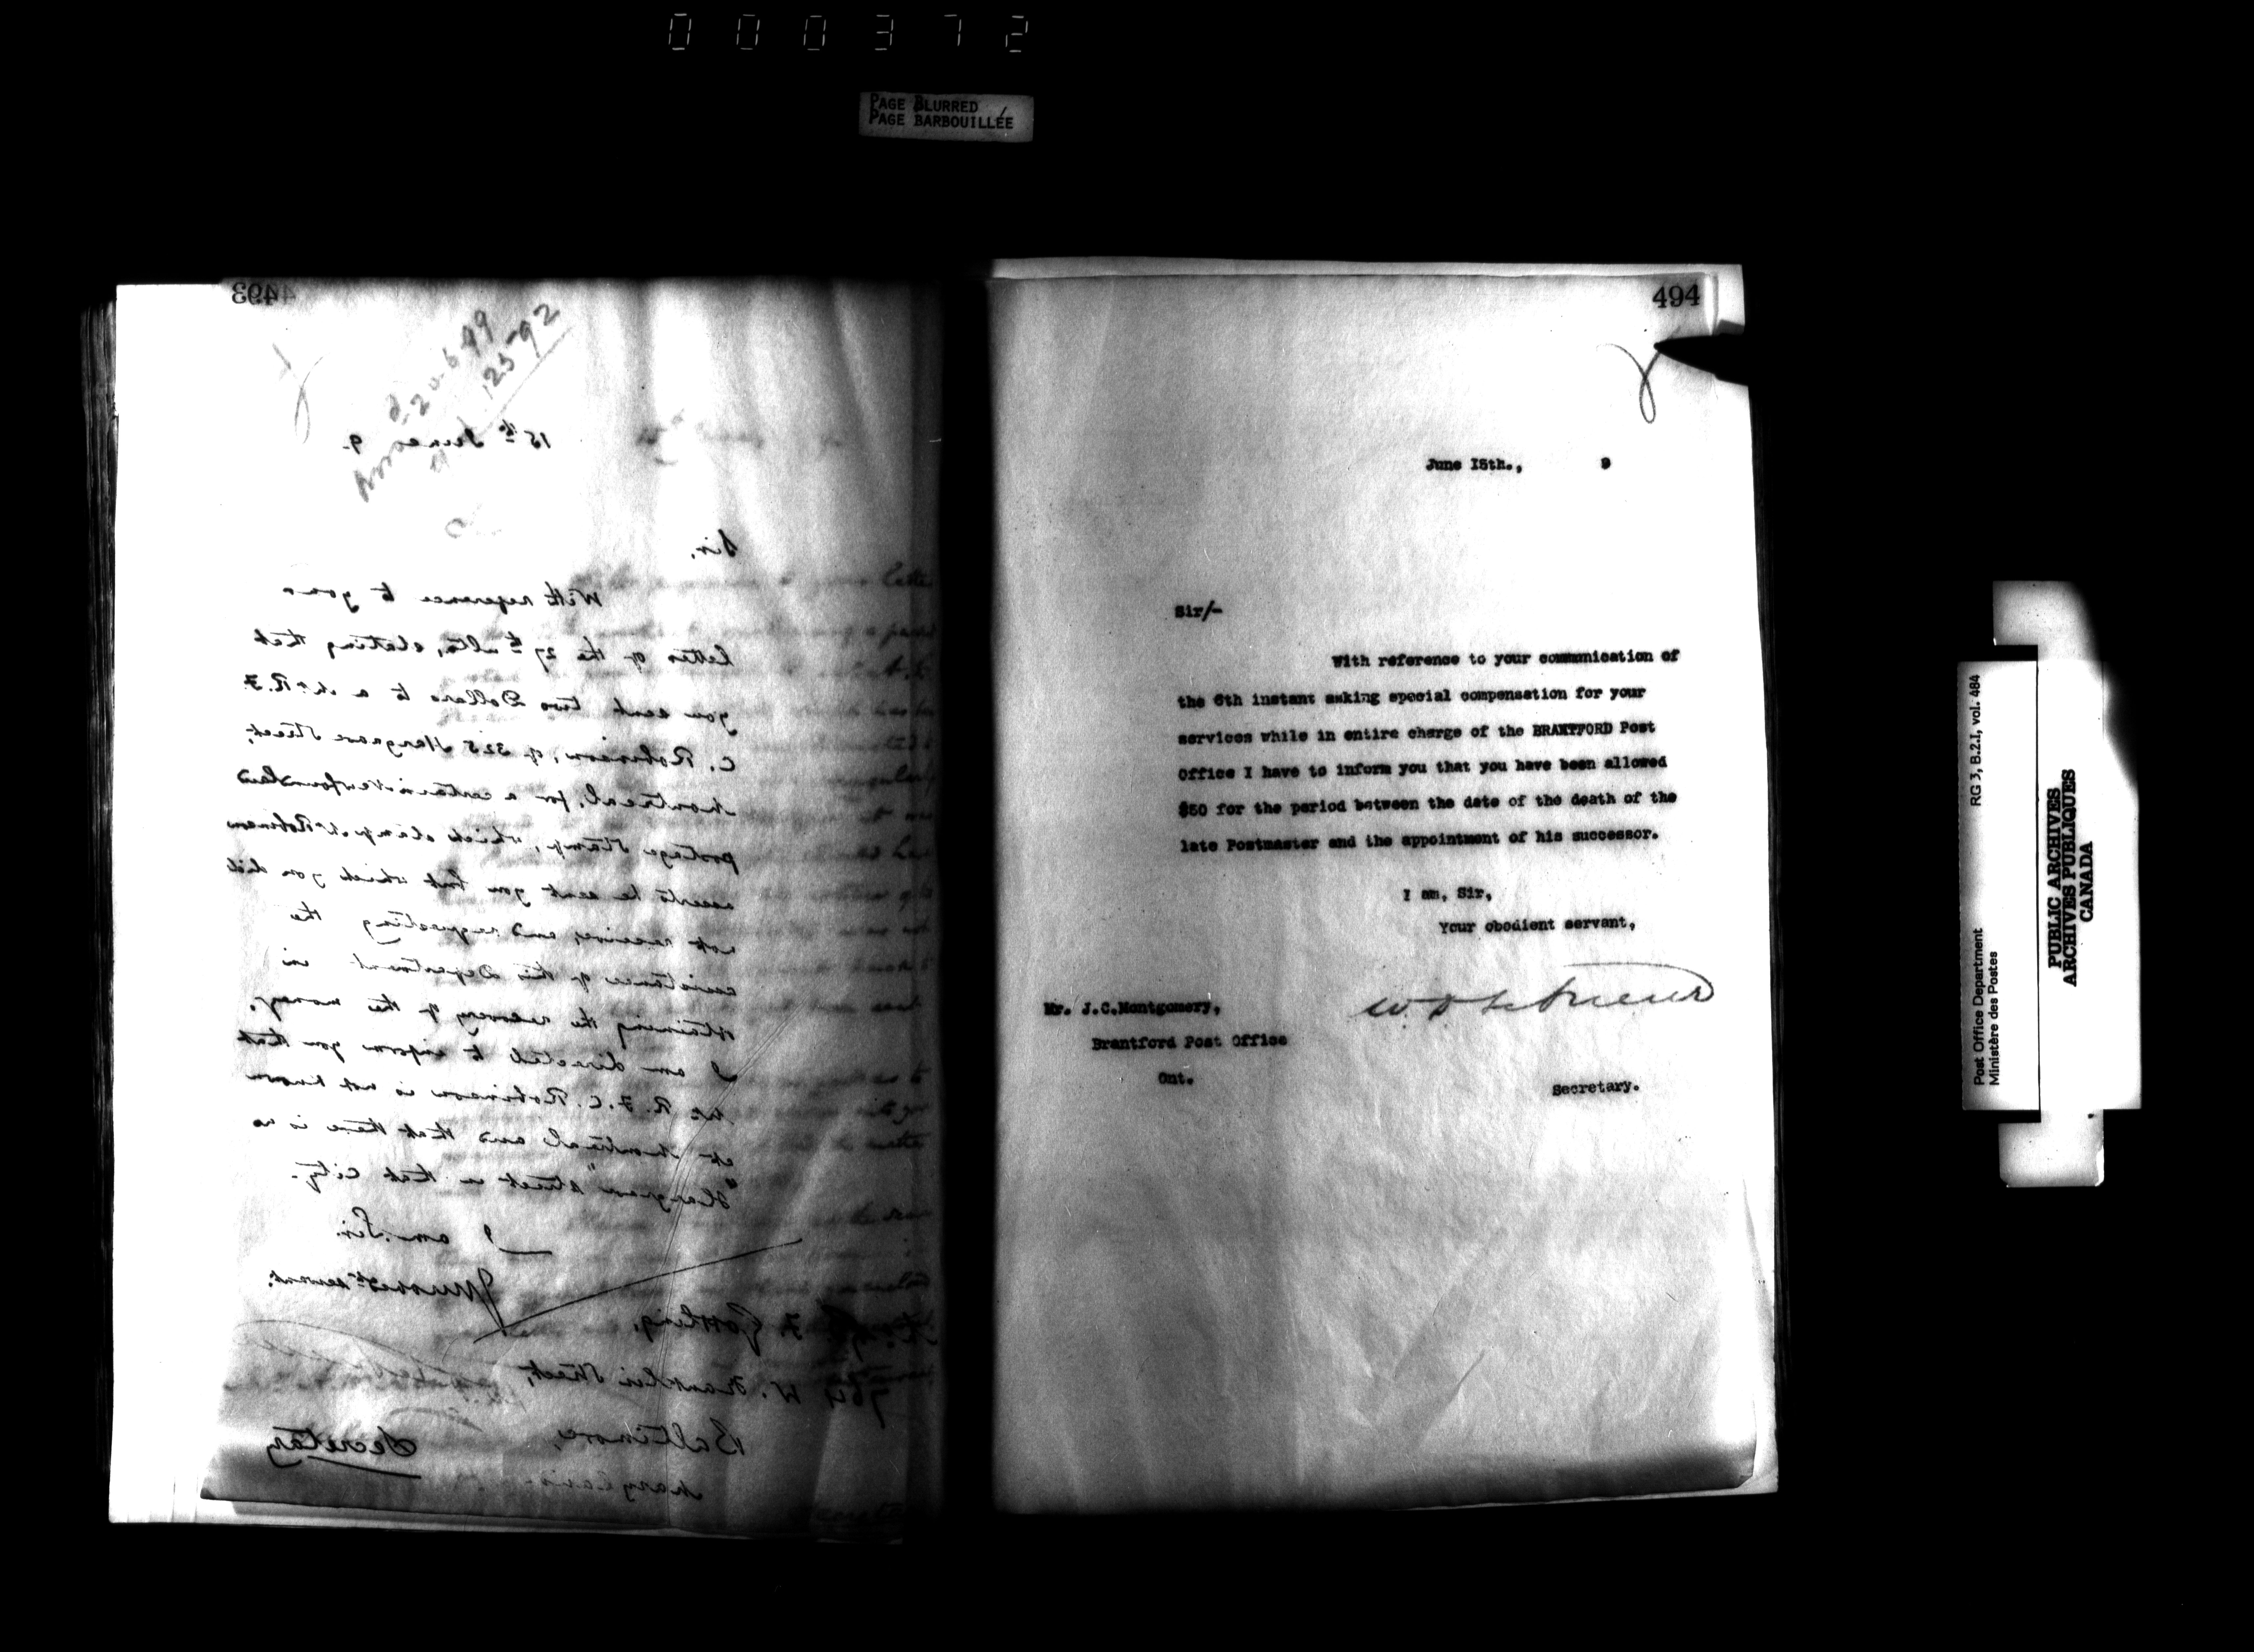 000372
PAGE BLURRED
PAGE BARBOUILLÉE
493
20-6-99
123-92
15th June 9.
Sir,
With reference to your
letter of the 27th ulto, stating that
you sent two Dollars to a Mr R. F.
C. Robinson, of 325 Hargrave Street,
Montreal, for a certain Newfoundland
postage stamp, which stamp Mr Robinson
asserts he sent you but which you did
not receive, and requesting the
assistance of this Department in
obtaining the recovery of the money,
I am directed to inform you that
Mr R. F. C. Robinson is not known
at Montreal and that there is no
"Hargrave Street" in that City.
I am, Sir,
Your obedt servant.
F. Gosling,
764 W. Franklin Street,
Baltimore,
Maryland
Secretary
494
June 15th., 9
Sir/-
With reference to your communication of
the 6th instant asking special compensation for your
services while in entire charge of the BRANTFORD Post
Office I have to inform you that you have been allowed
$50 for the period between the date of the death of the
late Postmaster and the appointment of his successor.
I am, Sir,
Your obedient servant,
Mr. J.C.Montgomery,
Brantford Post Office
Ont.
Secretary.
Post Office Department
Ministère des Postes
RG 3, B.2.I, vol. 484
PUBLIC ARCHIVES
ARCHIVES PUBLIQUES
CANADA